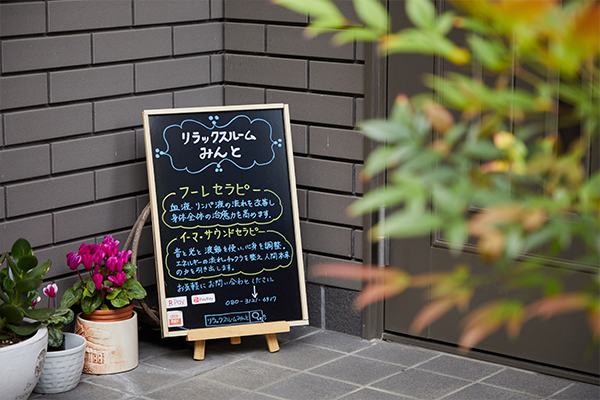 リラックスルーム
みんと
フーレセラピー
血液・リンパ液の流れを改善し
身体全体の治癒力を高めます。
イーマ・サウンドセラピー
音と光と波動を使い、心身を調整。
エネルギーの流れ・チャクラを整え人間本来
の力を引き出します。
お気軽にお問い合わせください
R Pay
PayPay
リラックスルームみんと